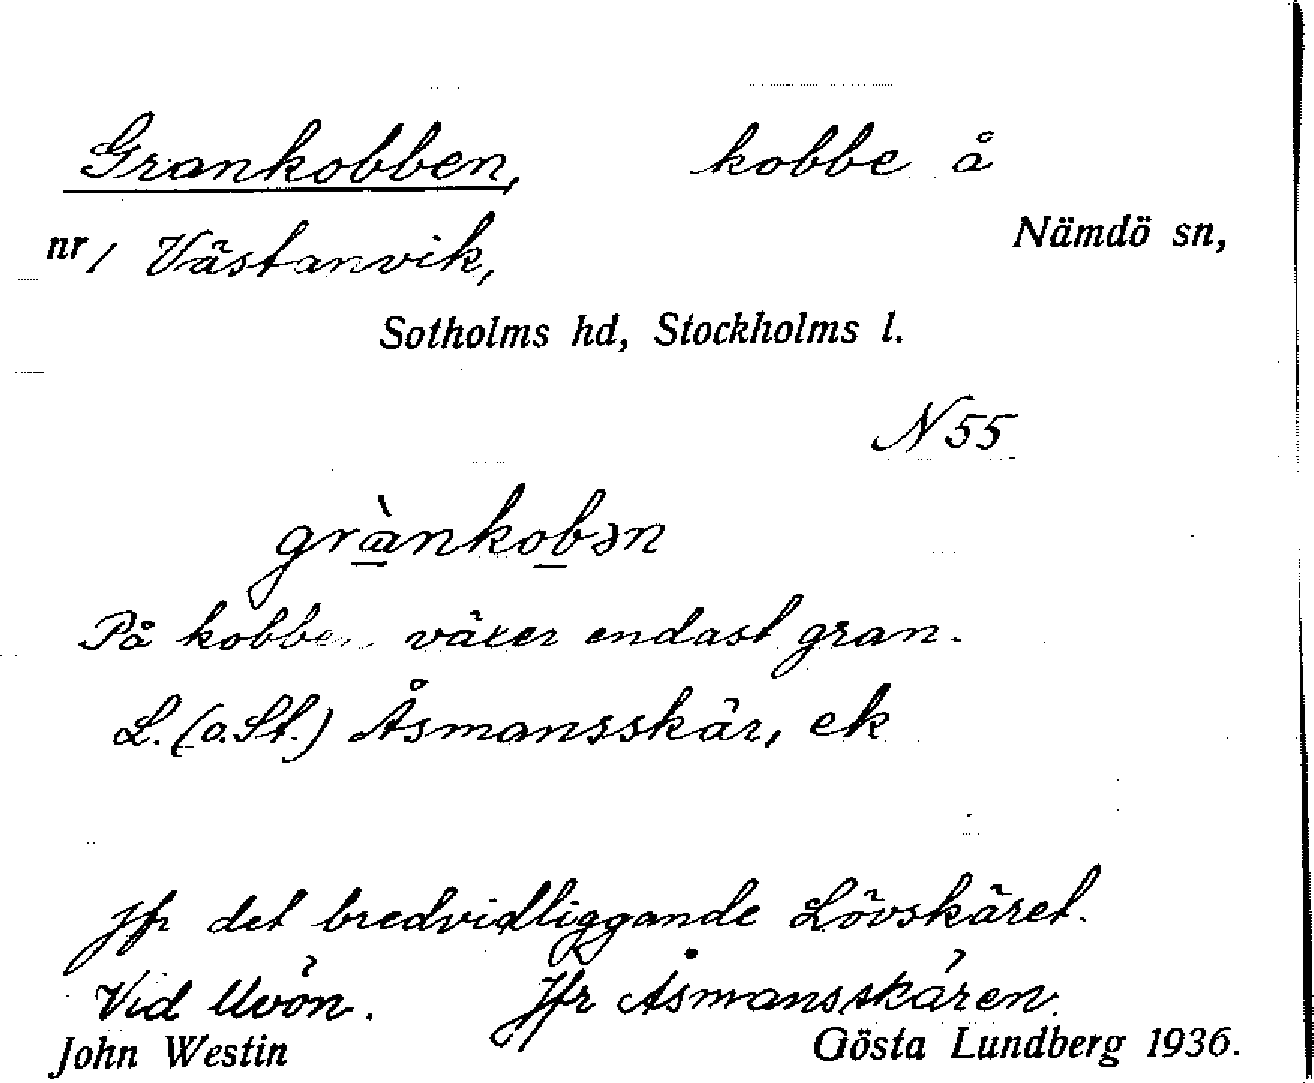 Grankobben, kobbe å
nr 1 Västanvik, Nämdö sn,
Sotholms hd, Stockholms l.
N 55
grànkobən
På kobben växer endast gran.
L. (o. St.) Åsmansskär, ek
Jfr det bredvidliggande Lövskäret.
Vid Uvön. Jfr Åsmansskären.
John Westin Gösta Lundberg 1936.